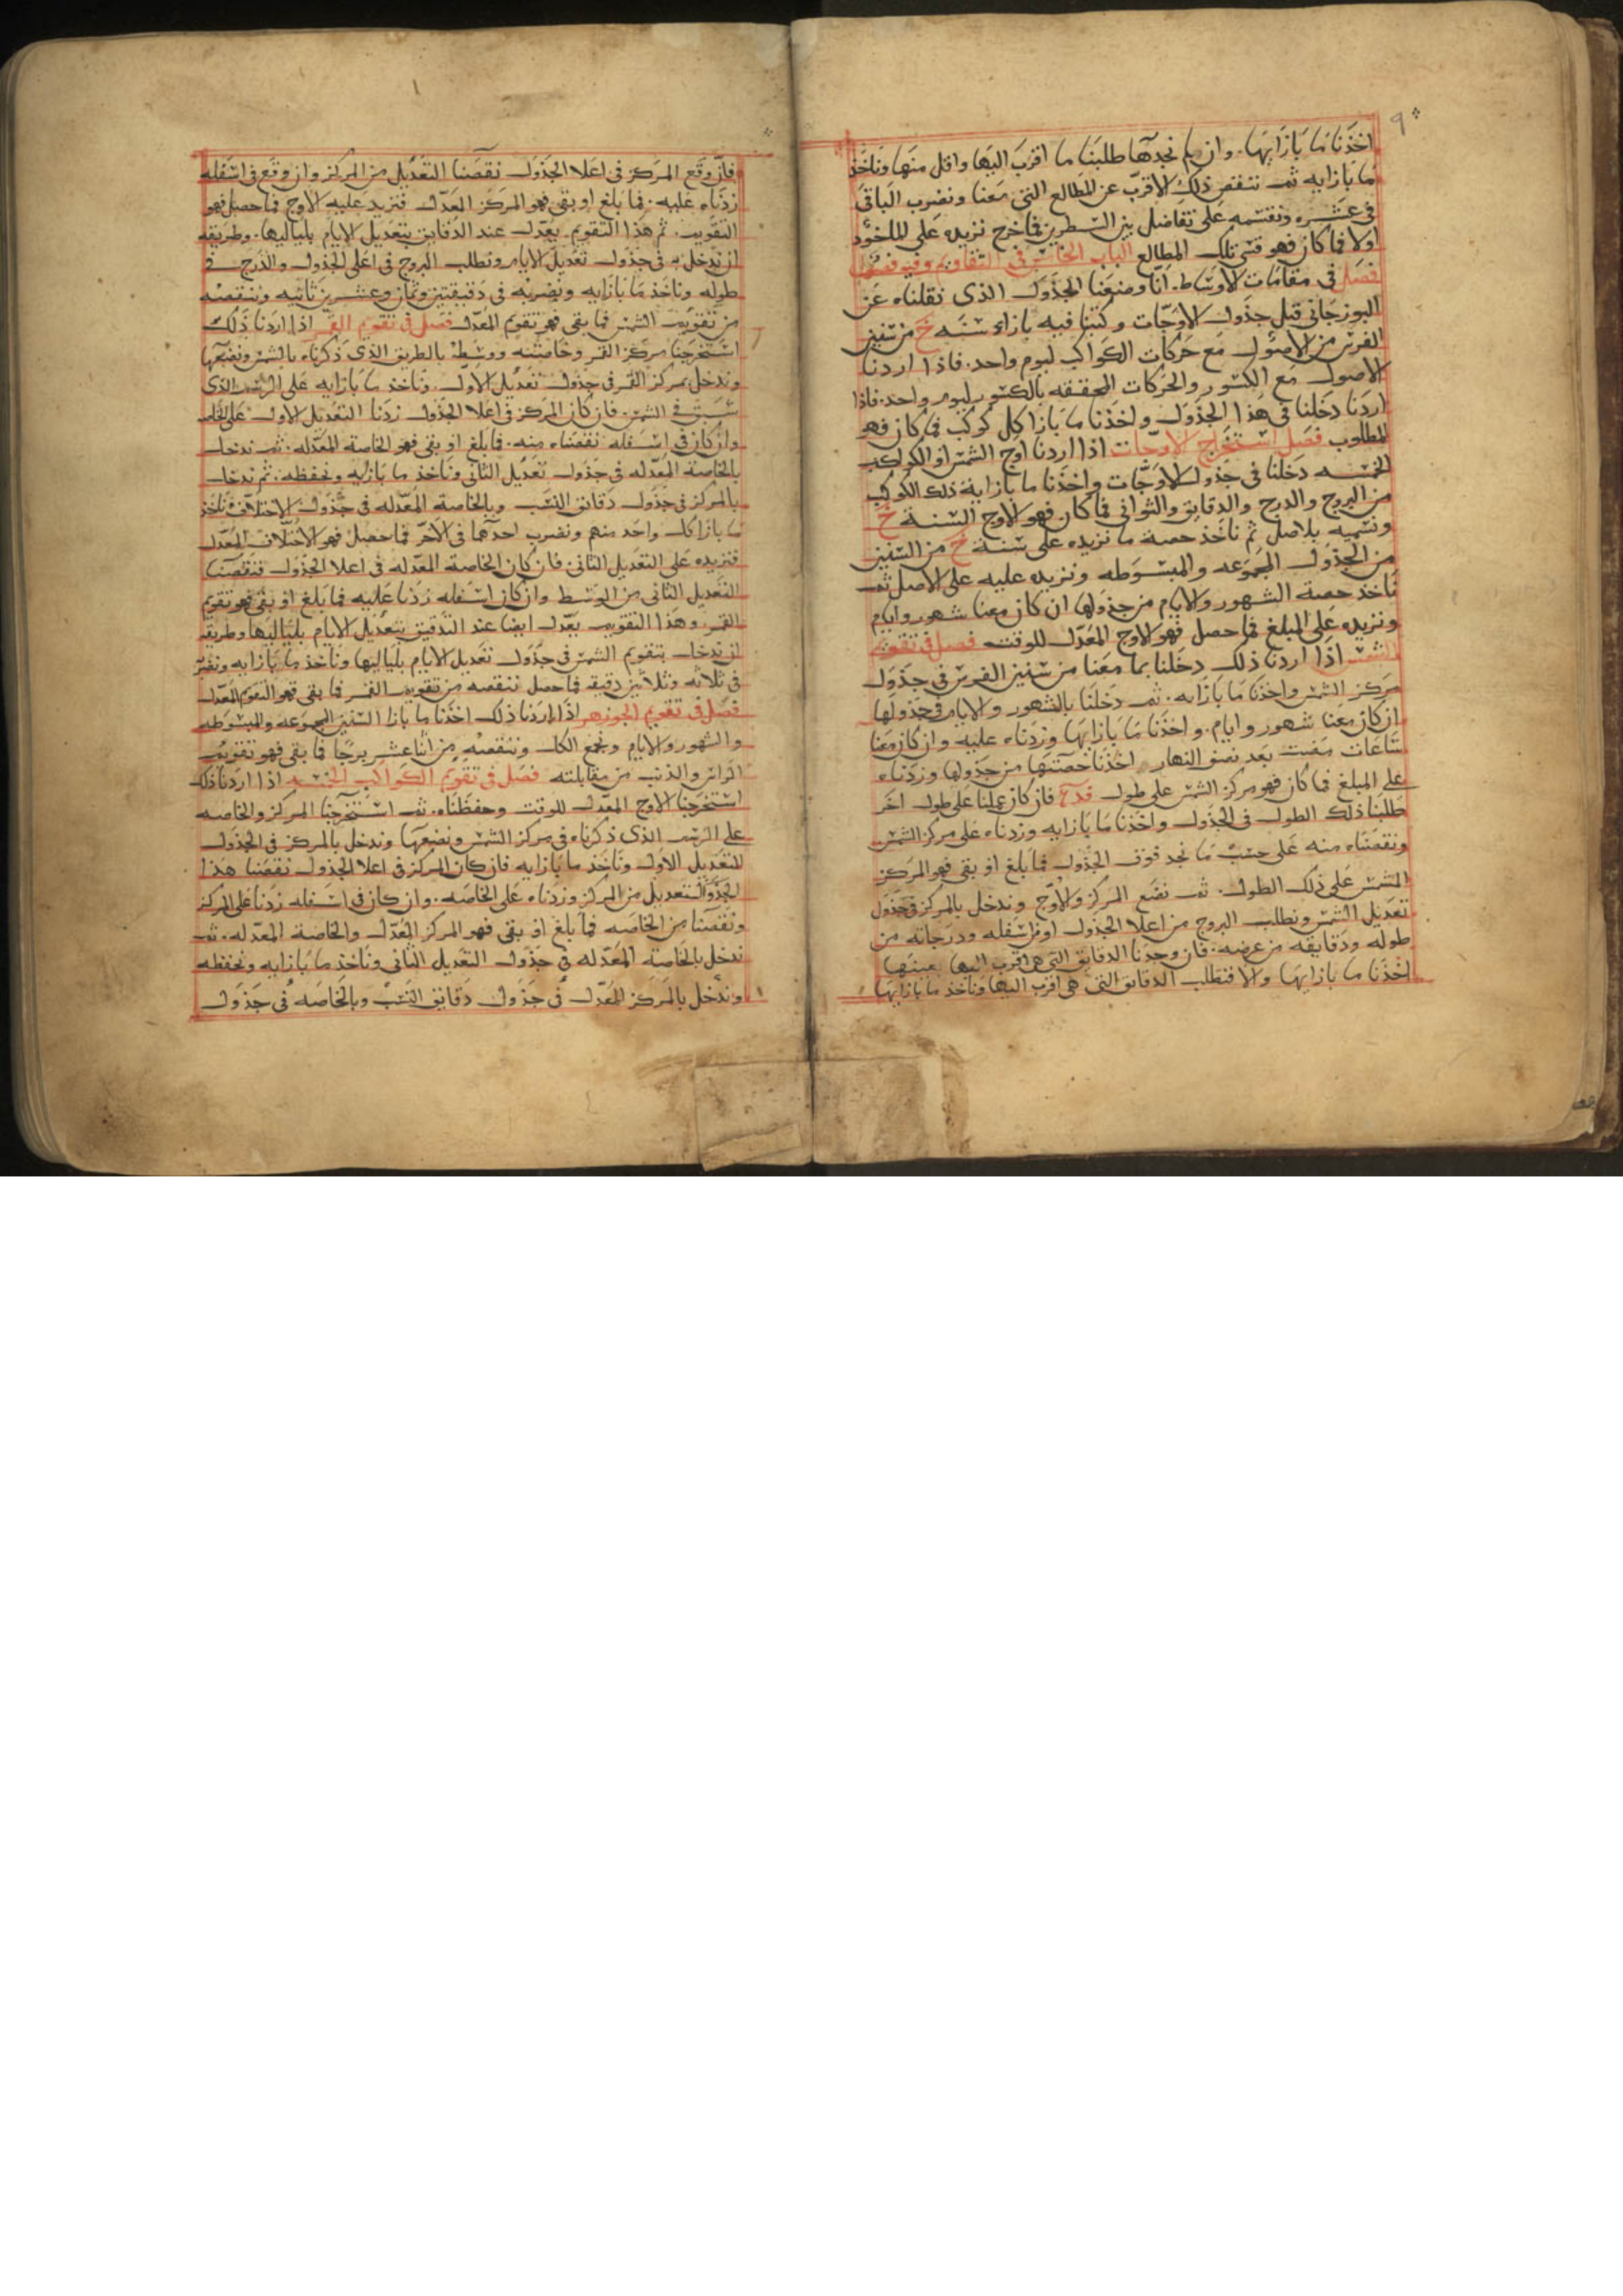 ٩
اخذنا ما بازايها. وان لم نجدها طلبنا ما اقرب اليها واقل منها وناخذ
ما بازايه ثم ننقص ذلك الاقرب عن المطالع التي معنا ونضرب الباقي
في عشره ونقسمه على تفاضل بين السطرين فما خرج نزيده على الماخوذ
اولا فما كان فهو قسي تلك المطالع الباب الخامس في التقاويم وفيه فصول
فصل في مقامات الاوساط. انا وضعنا الجدول الذي نقلناه عن
البوزجاني قبل جدول الاوجات وكتبنا فيه بازاء سنه خ من سنين
الفرس من الاصول مع حركات الكواكب ليوم واحد. فاذا اردنا
الاصول مع الكسور والحركات المحققه بالكسور ليوم واحد. فاذا
اردنا دخلنا في هذا الجدول واخذنا ما بازا كل كوكب فما كان فهو
المطلوب فصل استخراج الاوجات اذا اردنا اوج الشمس او الكواكب
الخمسه دخلنا في جدول الاوجات واخذنا ما بازايه ذلك الكوكب
من البروج والدرج والدقايق والثواني فما كان فهو الاوج السنة خ
ونسميه بلاصل ثم ناخذ حصة ما نزيده على سنة خ من السنين
من الجدول المجموعه والمبسوطه ونزيده عليه على الاصل ثم
ناخذ حصة الشهور والايام من جدولها ان كان معنا شهور وايام
ونزيده على المبلغ فما حصل فهو الاوج المعدل للوقت فصل في تقويم
الشمس اذا اردنا ذلك دخلنا بما معنا من سنين الفرس في جدول
مركز الشمس واخذنا ما بازايه. ثم دخلنا بالشهور والايام في جدولها
ان كان معنا شهور وايام. واخذنا ما بازايها وزدناه عليه وان كان معنا
ساعات مضت بعد نصف النهار اخذنا حصتها من جدولها وزدناه
على المبلغ فما كان فهو مركز الشمس على طول فان كان عملنا على طول اخر
طلبنا ذلك الطول في الجدول واخذنا ما بازايه وزدناه على مركز الشمس
ونقصناه منه على حسب ما نجد فوق الجدول فما بلغ او بقي فهو المركز
الشمس على ذلك الطول. ثم نضع المركز والاوج وندخل بالمركز في جدول
تعديل الشمس ونطلب البروج من اعلا الجدول او من اسفله ودرجاته من
طوله ودقايقه من عرضه. فان وجدنا الدقايق التي هي اقرب اليها بعينها
اخذنا ما بازايها والا فنطلب الدقايق التي هي اقرب اليها وناخذ ما بازايها
فان وقع المركز في اعلا الجدول نقصنا التعديل من المركز وان وقع في اسفله
زدناه عليه. فما بلغ او بقي فهو المركز المعدل فنزيد عليه الاوج فما حصل فهو
التقويم. ثم هذا التقويم يعدل عند الدقايق بتعديل الايام بلياليها. وطريقه
ان ندخل به في جدول تعديل الايام ونطلب البروج في اعلى الجدول والدرج في
طوله وناخذ ما بازايه ونضربه في دقيقتين وثمان وعشرين ثانيه وننقصه
من تقويم الشمس فما بقي فهو تقويم المعدل فصل في تقويم القمر اذا اردنا ذلك
استخرجنا مركز القمر وخاصته ووسطه بالطريق الذي ذكرناه بالشمس ونضعها
وندخل بمركز القمر في جدول تعديل الاول. وناخذ ما بازايه على الرسم الذي
سبق في الشمس. فان كان المركز في اعلا الجدول زدنا التعديل الاول على الخاصه
وان كان في اسفله نقصناه منه. فما بلغ او بقي فهو الخاصة المعدله. ثم ندخل
بالخاصة المعدله في جدول تعديل الثاني وناخذ ما بازايه ونحفظه. ثم ندخل
بالمركز في جدول دقائق النسب وبالخاصة المعدله في جدول الاختلاف فناخذ
ما بازا كل واحد منهم ونضرب احدهما في الاخر فما حصل فهو الاختلاف المعدل
فنزيده على التعديل الثاني. فان كان الخاصة المعدله في اعلا الجدول فنقصنا
التعديل الثاني من الوسط وان كان اسفله زدنا عليه فما بلغ او بقي فهو تقويم
القمر وهذا التقويم يعدل ايضا عند التدقيق بتعديل الايام بلياليها وطريقه
ان ندخل بتقويم الشمس في جدول تعديل الايام بلياليها وناخذ ما بازايه ونضربه
في ثلاثه وثلاثين دقيقه فما حصل ننقصه من تقويم القمر فما بقي فهو التقويم المعدل
فصل في تقويم الجوزهر اذا اردنا ذلك اخذنا ما بازا السنين المجموعه والمبسوطه
والشهور والايام ونجمع الكل وننقصه من اثنا عشر برجا فما بقي فهو تقويم
الراس والذنب من مقابلته فصل في تقويم الكواكب الخمسه اذا اردنا ذلك
استخرجنا الاوج المعدل للوقت وحفظناه. ثم استخرجنا المركز والخاصه
على الرسم الذي ذكرناه في مركز الشمس ونضعها وندخل بالمركز في الجدول
للتعديل الاول وناخذ ما بازايه فان كان المركز في اعلا الجدول نقصنا هذا
التعديل من المركز وزدناه على الخاصه. وان كان في اسفله زدنا على المركز
ونقصنا من الخاصه فما بلغ او بقي فهو المركز المعدل والخاصة المعدله. ثم
ندخل بالخاصة المعدله في جدول التعديل الثاني وناخذ ما بازايه ونحفظه
وندخل بالمركز المعدل في جدول دقايق النسب وبالخاصه في جدول